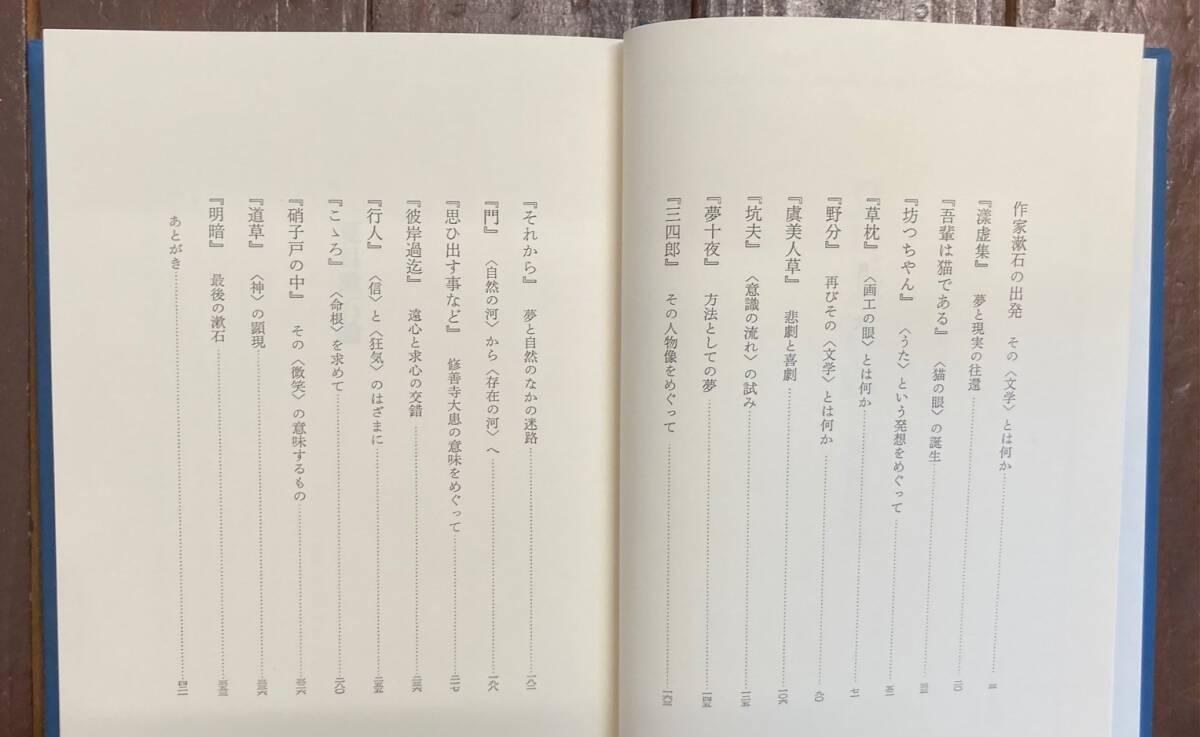 作家漱石の出発　その〈文学〉とは何か
『漾虚集』　夢と現実の往還
『吾輩は猫である』　〈猫の眼〉の誕生
『坊っちやん』　〈うた〉という発想をめぐって
『草枕』　〈画工の眼〉とは何か
『野分』　再びその〈文学〉とは何か
『虞美人草』　悲劇と喜劇
『坑夫』　〈意識の流れ〉の試み
『夢十夜』　方法としての夢
『三四郎』　その人物像をめぐって
『それから』　夢と自然のなかの迷路
『門』　〈自然の河〉から〈存在の河〉へ
『思ひ出す事など』　修善寺大患の意味をめぐって
『彼岸過迄』　遠心と求心の交錯
『行人』　〈信〉と〈狂気〉のはざまに
『こゝろ』　〈命根〉を求めて
『硝子戸の中』　その〈微笑〉の意味するもの
『道草』　〈神〉の顕現
『明暗』　最後の漱石
あとがき